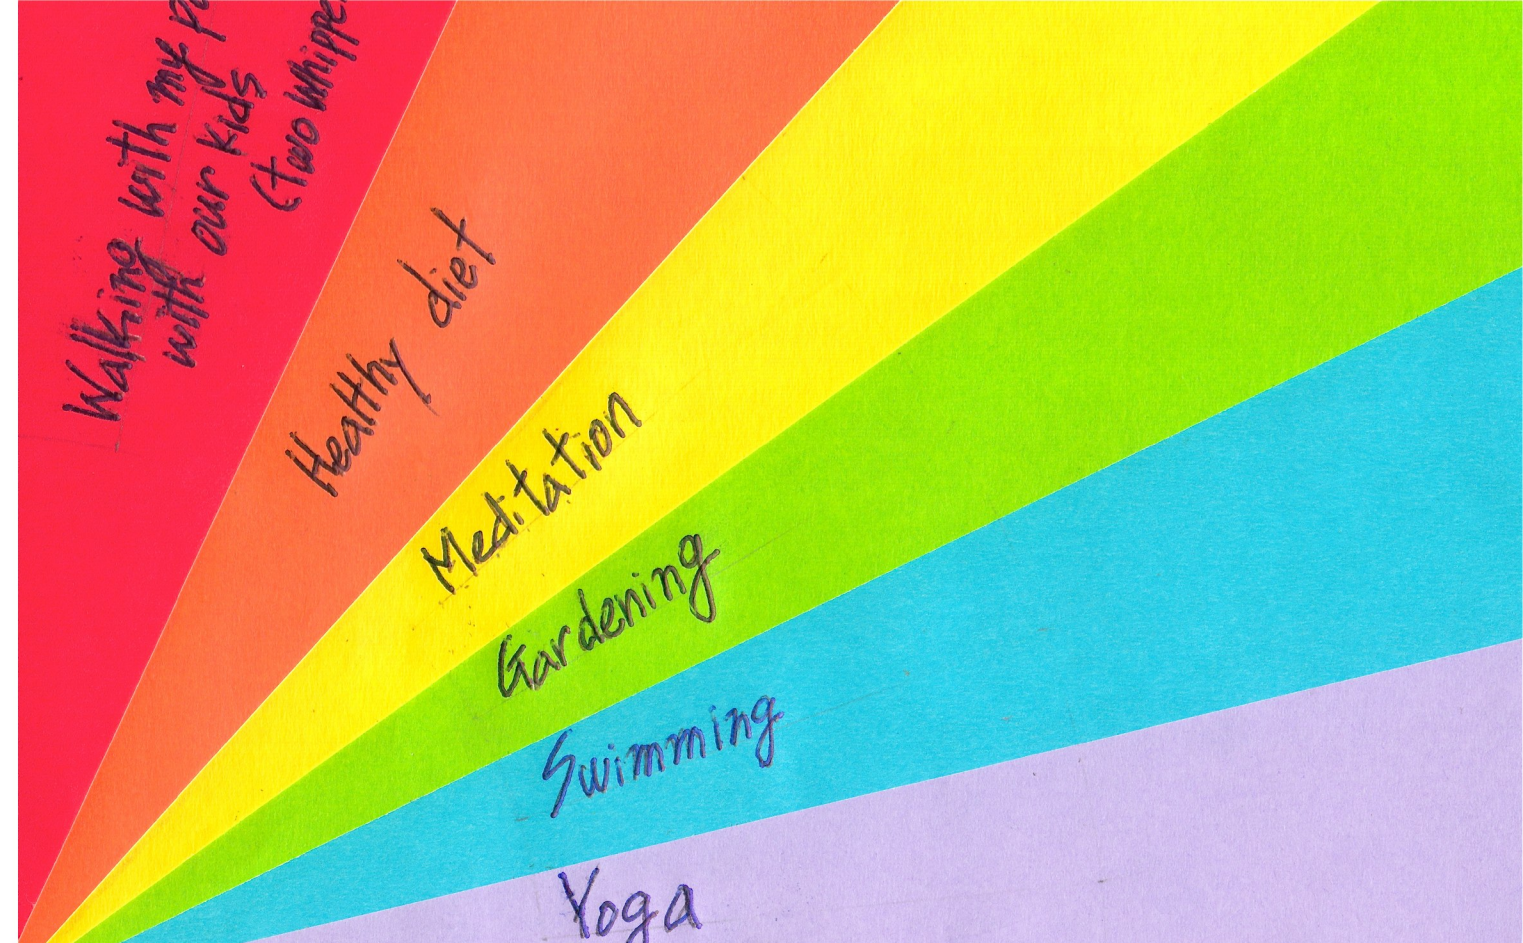 Walking with my
with our kids
(two
Healthy diet
Meditation
Gardening
Swimming
Yoga